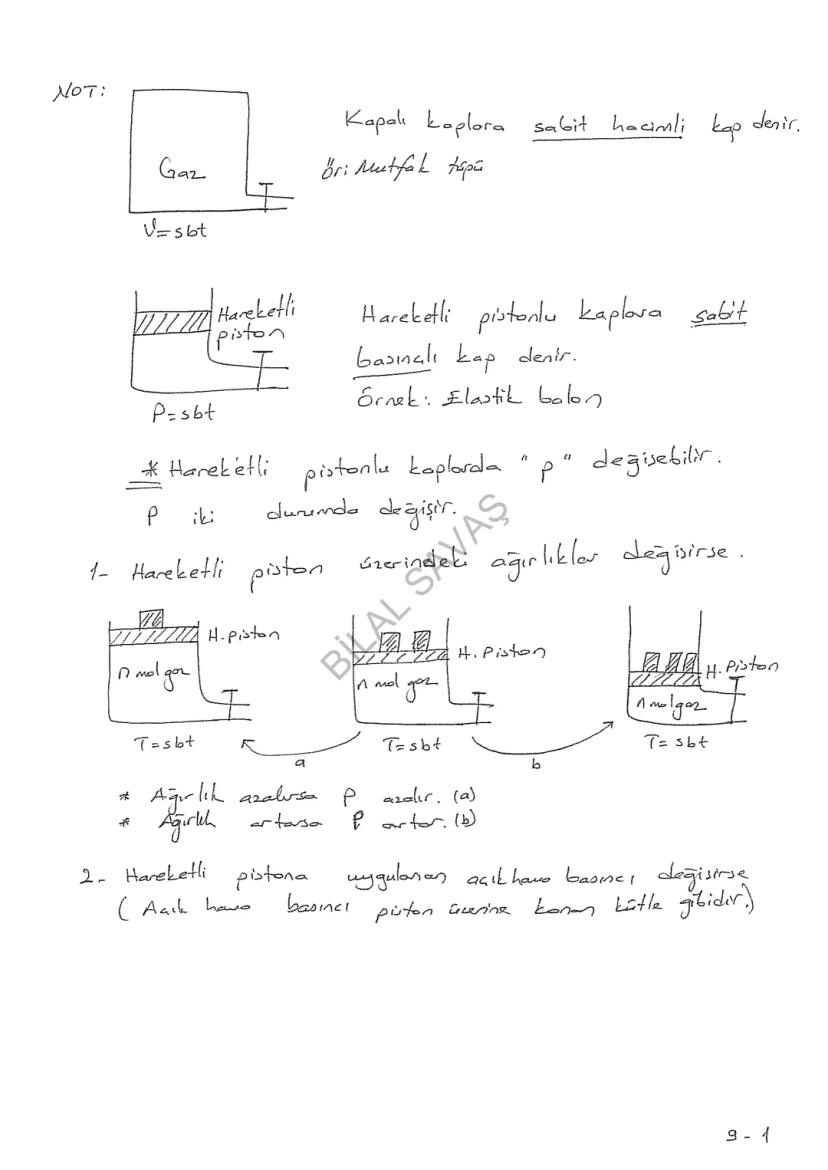 NOT:
Gaz
V=sbt
Kapalı kaplara sabit hacimli kap denir.
Ör: Mutfak tüpü
Hareketli
piston
P=sbt
Hareketli pistonlu kaplara sabit
basınçlı kap denir.
Örnek: Elastik balon
* Hareketli pistonlu kaplarda "P" değişebilir.
P iki durumda değişir.
1- Hareketli piston üzerindeki ağırlıklar değişirse.
H. piston
n mol gaz
T=sbt
H. Piston
n mol gaz
T=sbt
H. Piston
n mol gaz
T=sbt
a
b
* Ağırlık azalırsa P azalır. (a)
* Ağırlık artarsa P artar. (b)
2- Hareketli pistona uygulanan açık hava basıncı değişirse
(Açık hava basıncı piston üzerine konan kütle gibidir.)
BİLAL SAVAŞ
9-1